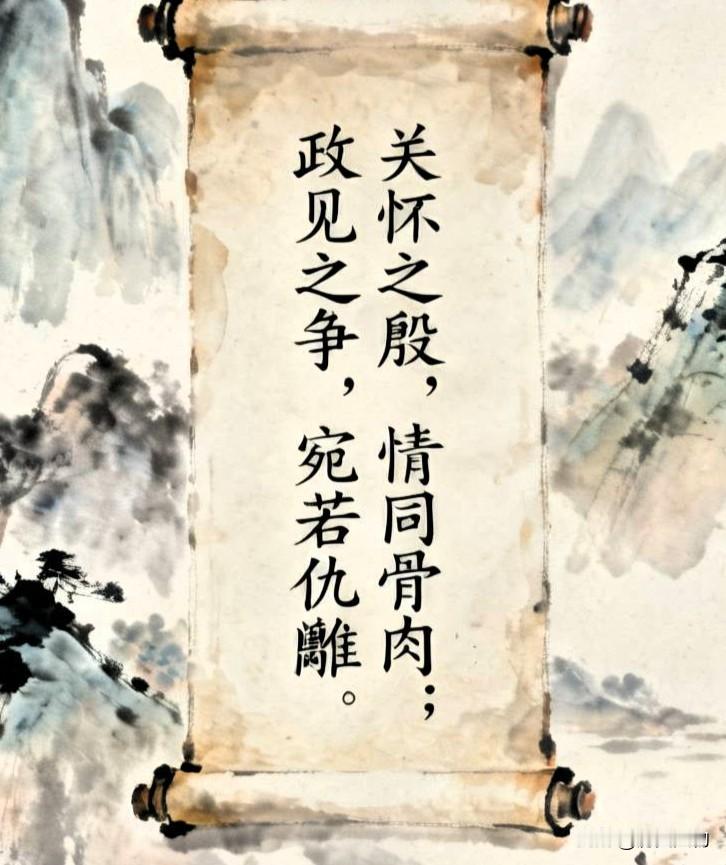 关怀之殷，情同骨肉；
政见之争，宛若仇